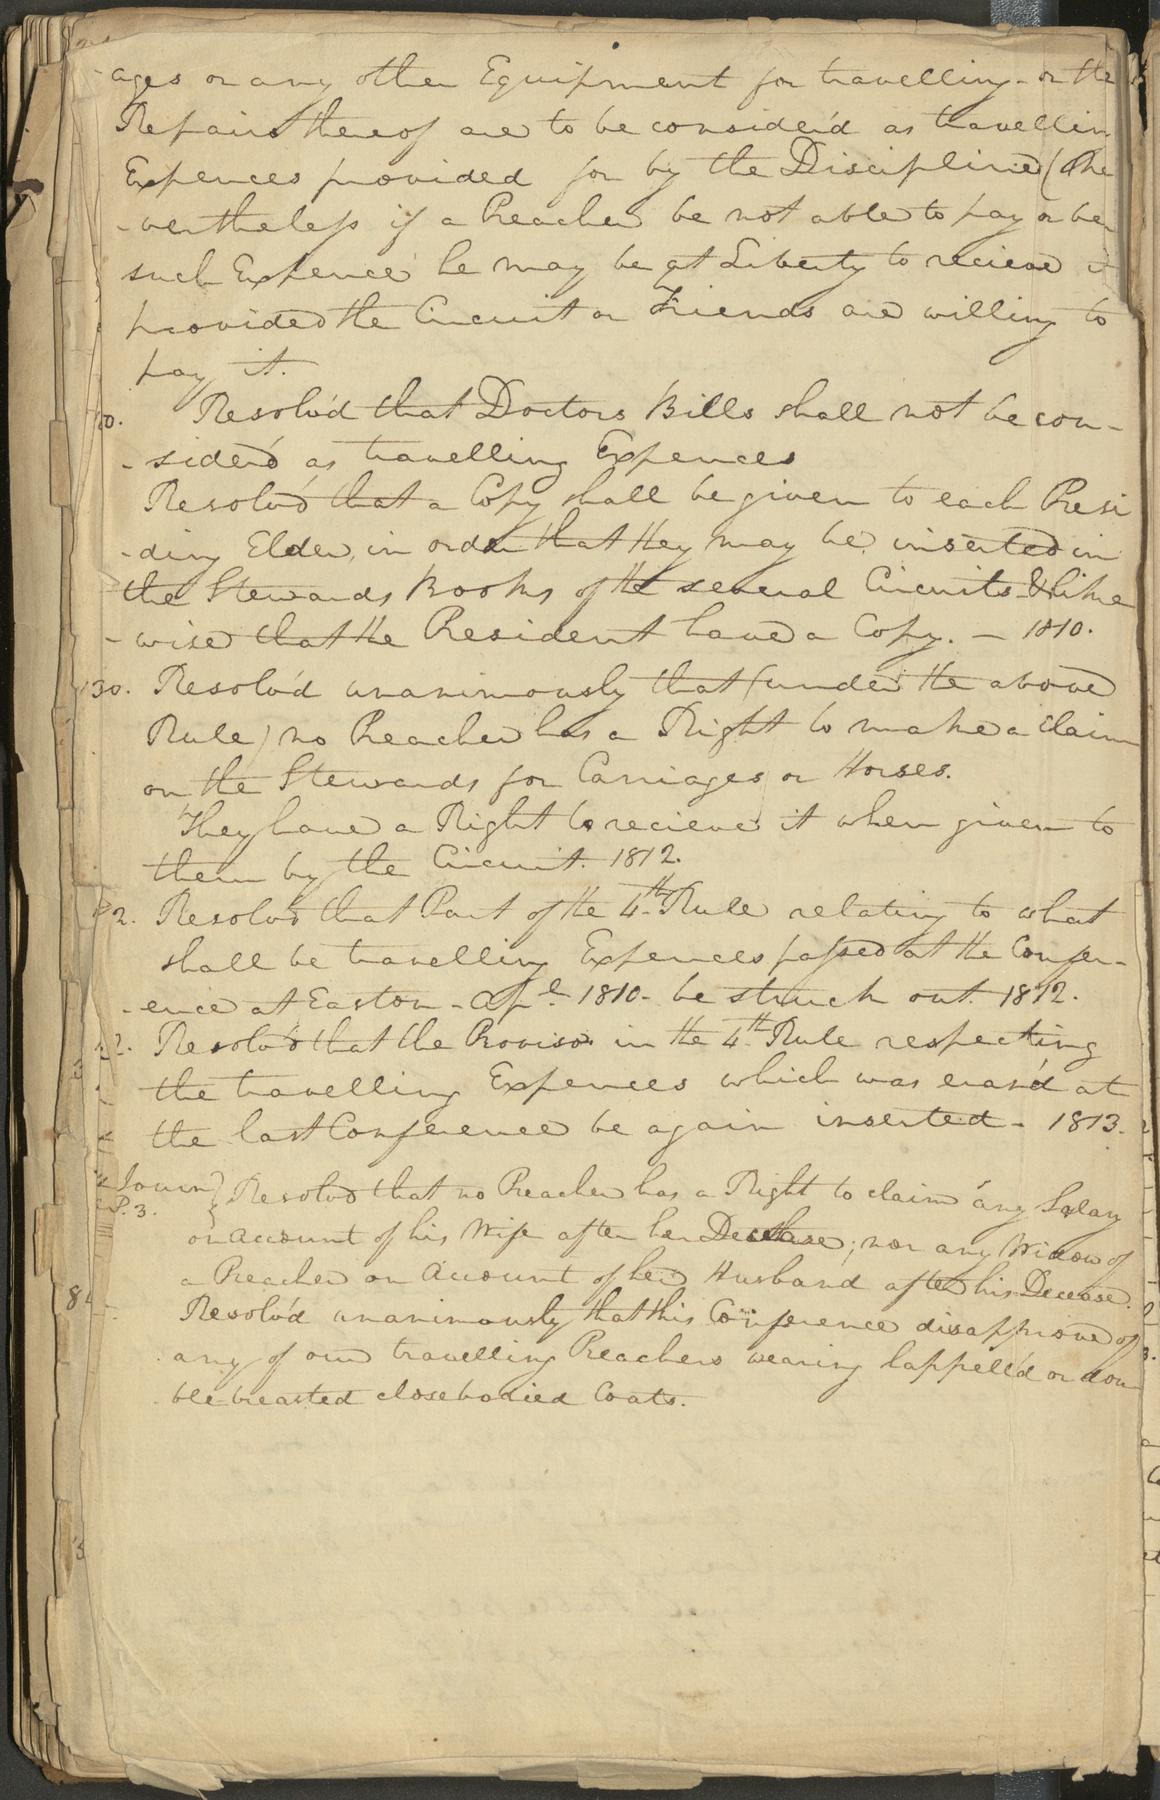 ages or any other Equipment for travelling - or the
Repairs thereof are to be consider'd as travellin
Expences provided for by the Discipline (Ne
-vertheless if a Preacher be not able to pay or be
such Expence he may be at Liberty to recieve it
provided the Circuit or Friends are willing to
pay it.
10. Resolv'd that Doctors Bills shall not be con-
-siderd as travelling Expences
Resolv'd that a Copy shall be given to each Presi
-ding Elder, in order that they may be inserted in
the Stewards Books of the several Circuits & like
-wise that the President have a Copy. - 1810.
130. Resolv'd unanimously that (under the above
Rule) no Preacher has a Right to make a claim
on the Stewards for Carriages or Horses.
They have a Right to recieve it when given to
them by the Circuit. 1812.
2. Resolv'd that Part of the 4th Rule relating to what
shall be travelling Expences passed at the Confer-
-ence at Easton - Apl 1810 - be struck out. 1812.
2. Resolv'd that the Proviso in the 4th Rule respecting
the travelling Expences which was eras'd at
the last Conference be again inserted - 1813.
Journ} Resolvd that no Preacher has a Right to claim any Salary
P. 3. } on account of his Wife after her Decease; nor any Widow of
a Preacher on Account of her Husband after his Decease.
Resolv'd unanimously that this Conference disapprove of
any of our travelling Preachers wearing lappell'd or dou
ble-breasted closebodied Coats.